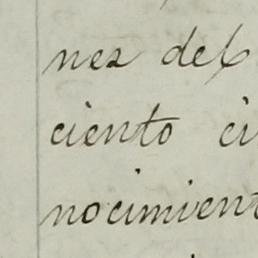 nes del
ciento ci
nocimient